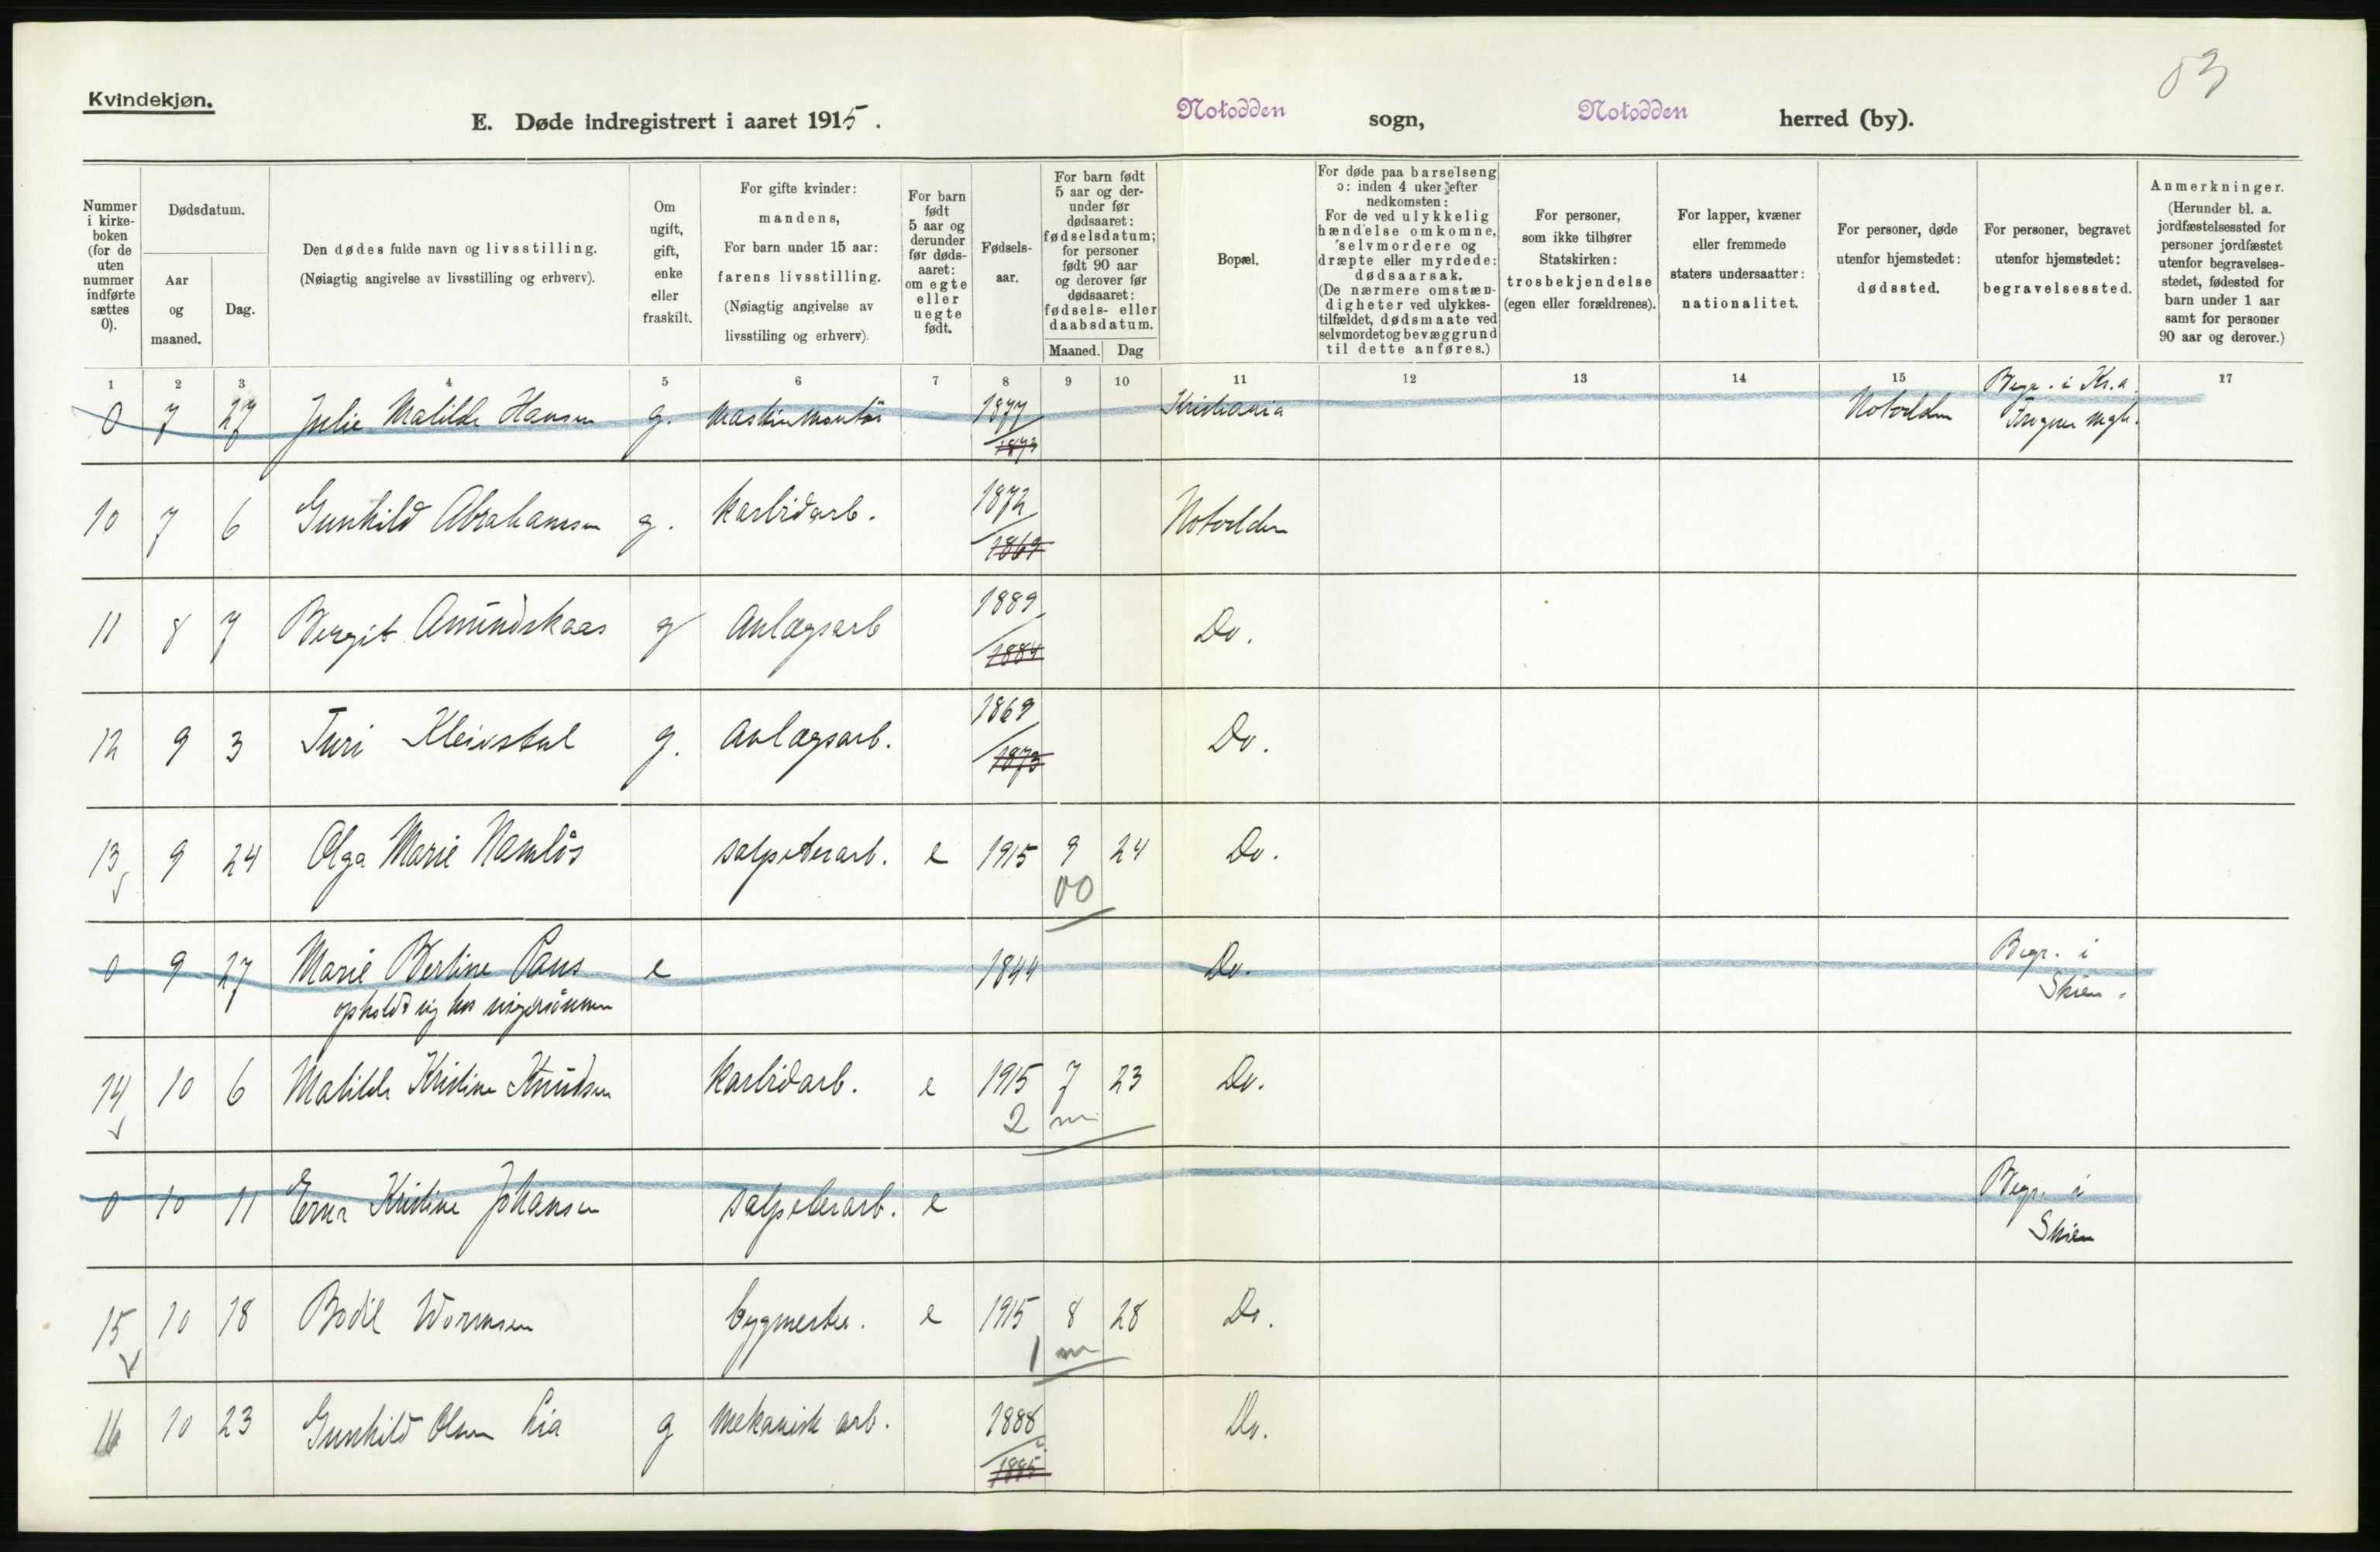 Kvindekjøn.
E. Døde indregistrert i aaret 1915. Notodden sogn, Notodden herred (by).
Nummer i kirkeboken (for de uten nummer indførte sættes 0).
Dødsdatum.
Aar og maaned.
Dag.
Den dødes fulde navn og livsstilling.
(Nøiagtig angivelse av livsstilling og erhverv).
Om ugift, gift, enke eller fraskilt.
For gifte kvinder: mandens,
For barn under 15 aar: farens livsstilling.
(Nøiagtig angivelse av livsstiling og erhverv).
For barn født 5 aar og derunder før dødsaaret: om egte eller uegte født.
Fødselsaar.
For barn født 5 aar og derunder før dødsaaret: fødselsdatum; for personer født 90 aar og derover før dødsaaret: fødsels- eller daabsdatum.
Maaned. Dag
Bopæl.
For døde paa barselseng ɔ: inden 4 uker efter nedkomsten:
For de ved ulykkelig hændelse omkomne, selvmordere og dræpte eller myrdede: dødsaarsak.
(De nærmere omstændigheter ved ulykkestilfældet, dødsmaate ved selvmordet og bevæggrund til dette anføres.)
For personer, som ikke tilhører Statskirken: trosbekjendelse (egen eller forældrenes).
For lapper, kvæner eller fremmede staters undersaatter: nationalitet.
For personer, døde utenfor hjemstedet: dødssted.
For personer, begravet utenfor hjemstedet: begravelsessted.
Anmerkninger.
(Herunder bl. a. jordfæstelsessted for personer jordfæstet utenfor begravelsesstedet, fødested for barn under 1 aar samt for personer 90 aar og derover.)
1 2 3 4 5 6 7 8 9 10 11 12 13 14 15 16 17
0 7 27 Julie Matilde Hansen g. maskinmontør 1877 1873 Kristiania Notodden Begr. i Kr.a.
10 7 6 Gunhild Abrahamsen g. karbidarb. 1872 1869 Notodden
11 8 7 Bergit Amundskaas g Anlægsarb 1889 1884 Do.
12 9 3 Turi Kleivstul g. Anlægsarb. 1869 1873 Do.
13 9 24 Olga Marie Namløs salpeterarb. e 1915 9 24 Do.
00
0 9 27 Marie Bertine Paus e 1844 Do. Begr. i Skien.
opholdt sig hos svigersønnen
14 10 6 Matilde Kristine Knudsen karbidarb. e 1915 7 23 Do.
2 m
0 10 11 Erna Kristine Johansen salpeterarb. e Begr. i Skien
15 10 18 Bodil Wormsen bygmester. e 1915 8 28 Do.
1 m
16 10 23 Gunhild Olsen Lia g mekanisk arb. 1888 1885 Do.